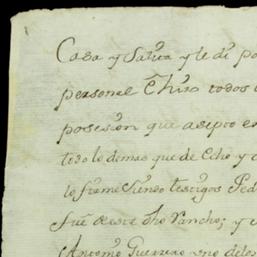 Casa y Salita y le di po
personal É hizo todos
posesion que asepto en
todo lo demas que de Echo y
lo firmé Siendo testigos Ped
fué de este dho Rancho; y
Antonio Guerrero uno delos